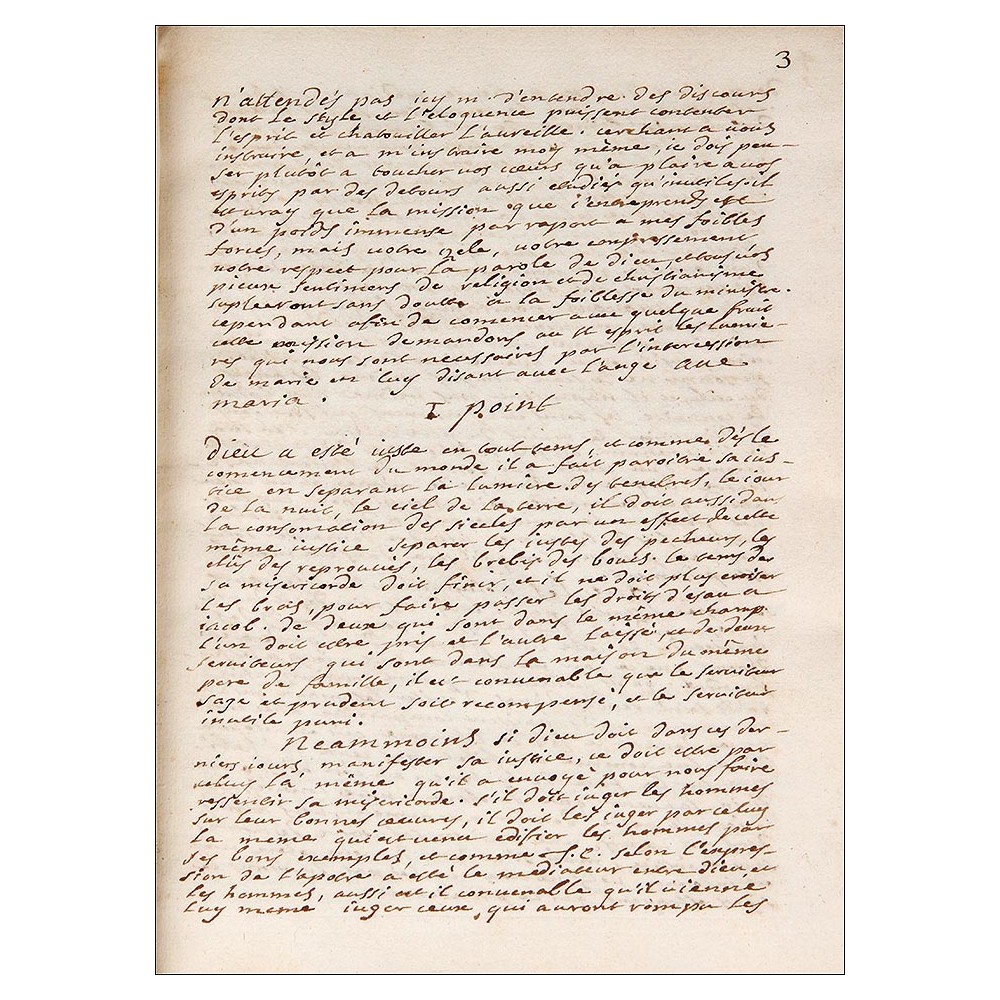 3
n'attendés pas icy m. d'entendre des discours
dont le style et l'éloquence puissent contenter
l'esprit et chatouiller l'aureille. cerchant a vous
instruire, et a m'instruire moy même, ie dois peu-
ser plutôt a toucher vos cœurs qu'a plaire a vos
esprits par des detours aussi etudiés qu'inutiles. il
est vray que la mission que i'entreprends est
d'un poids immense par raport a mes foibles
forces, mais votre zele, votre empressement
votre respect pour la parole de dieu, et tous vos
pieux sentimens de religion et de christianisme
supleeront sans doutte a la foiblesse du ministre.
cependant afin de comencer avec quelque fruit
cette mission demandons au st esprit les lumie-
res qui nous sont necessaires par l'intercession
de marie en luy disant avec l'ange ave
maria.
I point
Dieu a esté iuste en tout tems, et comme dés le
comencement du monde il a fait paroitre sa ius-
tice en separant la lumiere des tenebres, le iour
de la nuit, le ciel de la terre, il doit aussi dans
la consomation des siecles par un effect de cette
même iustice separer les iustes des pecheurs, les
elûs des reprouvés, les brebis des boucs. le tems de
sa misericorde doit finir, et il ne doit plus croiser
les bras, pour faire passer les droits d'esau a
iacob. de deux qui sont dans le même champ
l'un doit etre pris et l'autre laissé, et de deux
serviteurs qui sont dans la maison du même
pere de famille, il est convenable que le serviteur
sage et prudent soit recompensé, et le serviteur
inutile puni.
Neammoins si dieu doit dans ces der-
niers iours manifester sa iustice, ce doit etre par
celuy la même qu'il a envoyé pour nous faire
ressentir sa misericorde. s'il doit iuger les hommes
sur leur bonnes œuvres, il doit les iuger par celuy
la meme qui est venu edifier les hommes par
ses bons exemples, et comme J.C. selon l'expres-
sion de l'apotre a esté le mediateur entre dieu et
les hommes, aussi est il convenable qu'il vienne
luy meme iuger ceux, qui auront rompu les